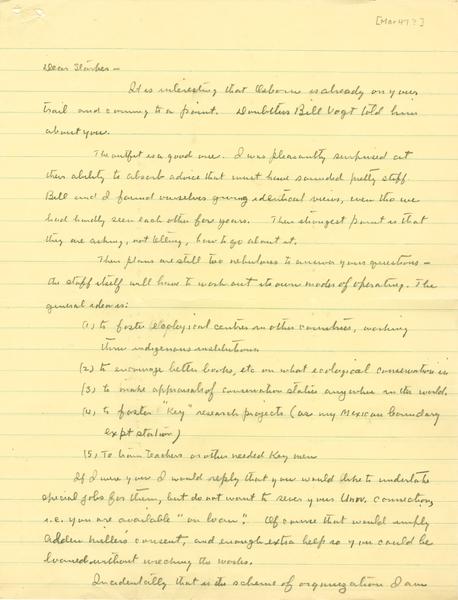 [Mar 47?]
Dear Starker —
It is interesting that Osborn is already on your
trail and coming to a point. Doubtless Bill Vogt told him
about you.
The outfit is a good one. I was pleasantly surprised at
their ability to absorb advice that must have sounded pretty stiff.
Bill and I found ourselves giving identical views, even tho we
had hardly seen each other for years. Their strongest point is that
they are asking, not telling, how to go about it.
Their plans are still too nebulous to answer your questions —
the staff itself will have to work out its own modes of operating. The
general idea is:
(1) to foster ecological centres in other countries, working
thru indigenous institutions
(2) to encourage better books, etc on what ecological conservation is
(3) to make appraisals of conservation status anywhere in the world.
(4) to foster "Key" research projects (as my Mexican boundary
expt station)
(5) To train teachers or other needed Key men
If I were you I would reply that you would like to undertake
special jobs for them, but do not want to sever your Univ. connection,
i.e. you are available "on loan". Of course that would imply
Alden Miller's consent, and enough extra help so you could be
loaned without wrecking the works.
Incidentally that is the scheme of organization I am